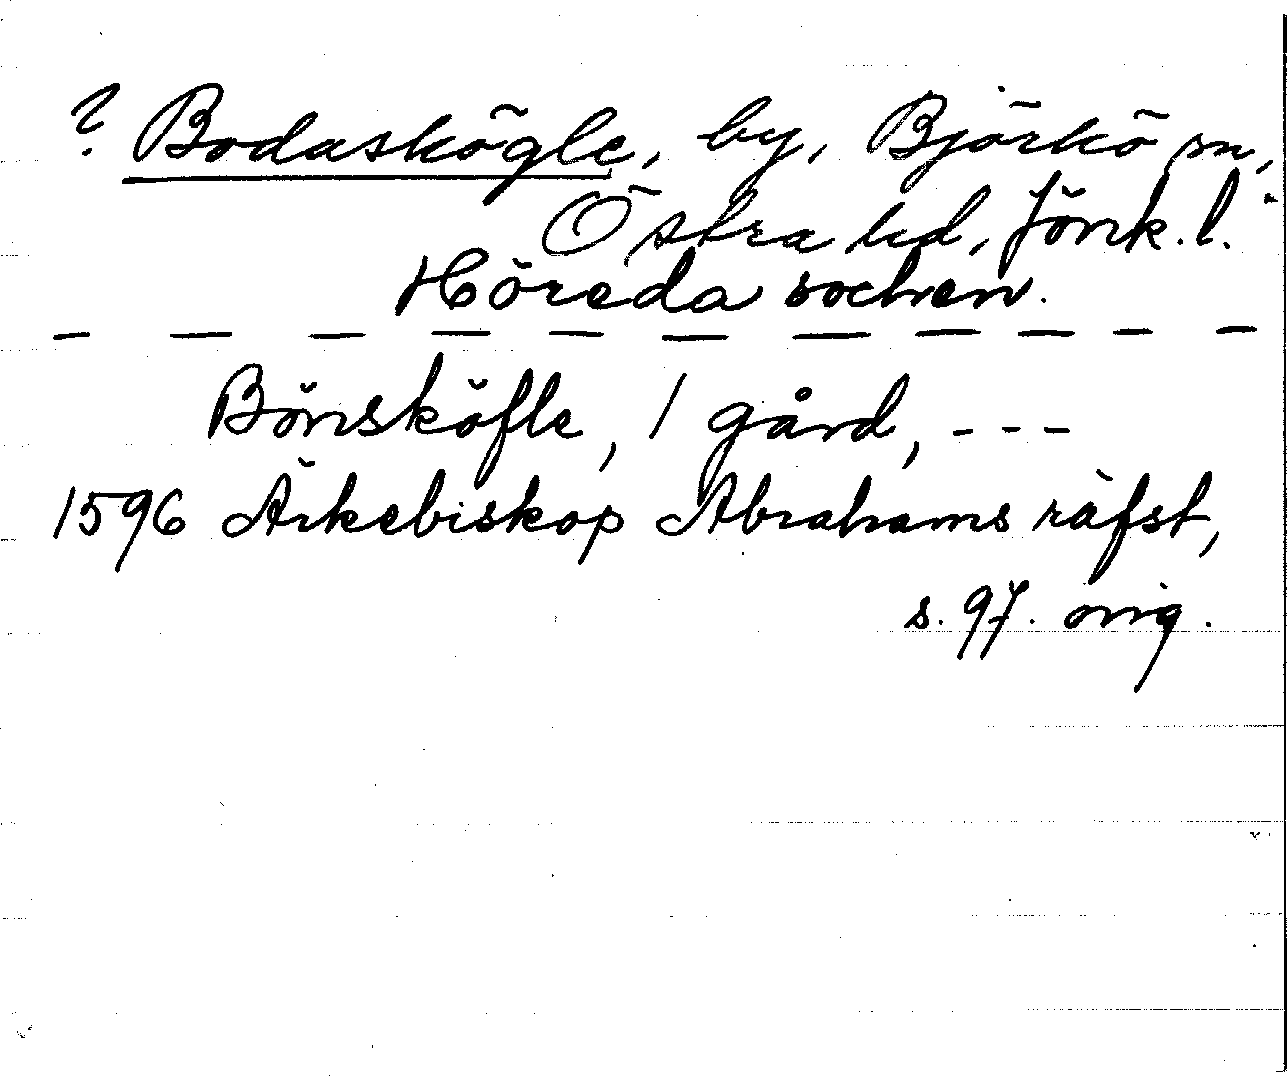 ? Bodaskögle, by, Björkö sn,
Östra hd, Jönk. l.
Höreda sochen.
— — — — — — — — — — —
Bönsköfle, 1 gård, - - -
1596 Ärkebiskop Abrahams räfst,
s. 97. orig.